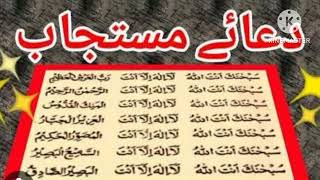 دعائے مستجاب
KINEMASTER
سُبْحٰنَكَ اَنْتَ اللهُ لَآ اِلٰهَ اِلَّا اَنْتَ رَبُّ الْعَرْشِ الْعَظِيْمِ
سُبْحٰنَكَ اَنْتَ اللهُ لَآ اِلٰهَ اِلَّا اَنْتَ الرَّحْمٰنُ الرَّحِيْمُ
سُبْحٰنَكَ اَنْتَ اللهُ لَآ اِلٰهَ اِلَّا اَنْتَ الْمَلِكُ الْقُدُّوْسُ
سُبْحٰنَكَ اَنْتَ اللهُ لَآ اِلٰهَ اِلَّا اَنْتَ الْعَزِيْزُ الْجَبَّارُ
سُبْحٰنَكَ اَنْتَ اللهُ لَآ اِلٰهَ اِلَّا اَنْتَ الْمُصَوِّرُ الْحَكِيْمُ
سُبْحٰنَكَ اَنْتَ اللهُ لَآ اِلٰهَ اِلَّا اَنْتَ السَّمِيْعُ الْبَصِيْرُ
سُبْحٰنَكَ اَنْتَ اللهُ لَآ اِلٰهَ اِلَّا اَنْتَ الْبَصِيْرُ الصَّادِقُ